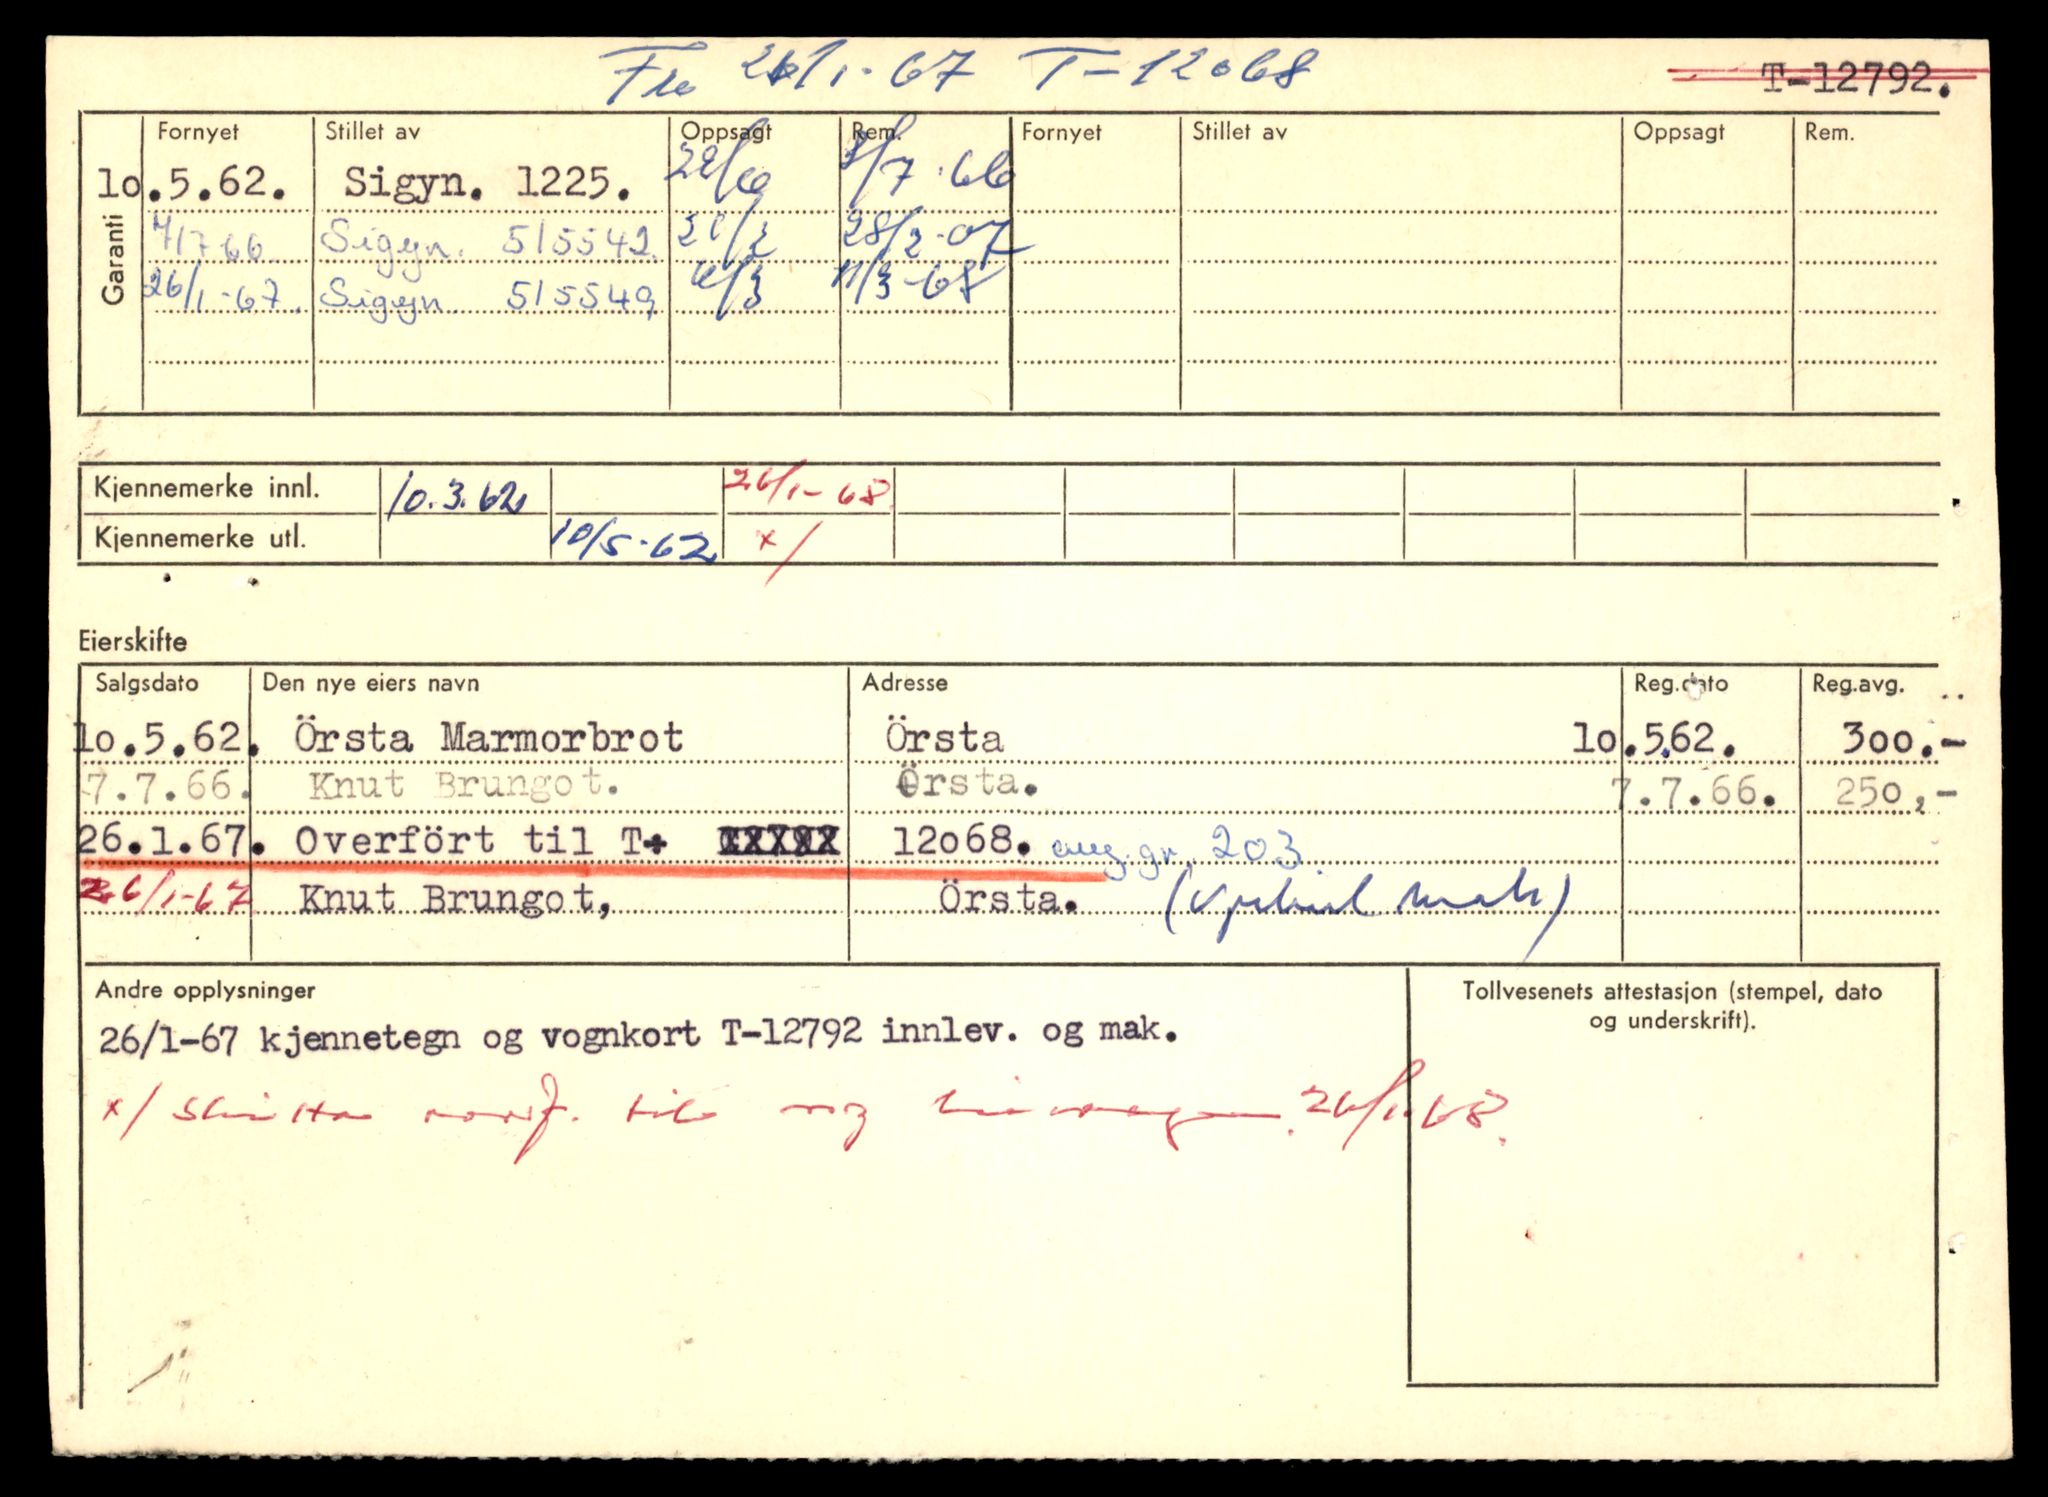 Fra 26/1-67 T-12068
T-12792.
Fornyet Stillet av Oppsagt Rem. Fornyet Stillet av Oppsagt Rem.
Garanti
10.5.62. Sigyn. 1225. /6 /7-66
7/7 66 Sigyn. 515542. /2 28/2-67
26/1-67. Sigyn 515549 6/3 11/3-68
Kjennemerke innl. 10.3.62 26/1-68
Kjennemerke utl. 10/5-62 x/
Eierskifte
Salgsdato Den nye eiers navn Adresse Reg.dato Reg.avg.
lo.5.62. Örsta Marmorbrot Örsta lo.5.62. 300.-
7.7.66. Knut Brungot. Örsta. 7.7.66. 250,-
26.1.67. Overfört til T- 12o68. avg.gr. 203
26/1-67 Knut Brungot, Örsta.
Andre opplysninger
Tollvesenets attestasjon (stempel, dato
og underskrift).
26/1-67 kjennetegn og vognkort T-12792 innlev. og mak.
x/ til 26/1-68.